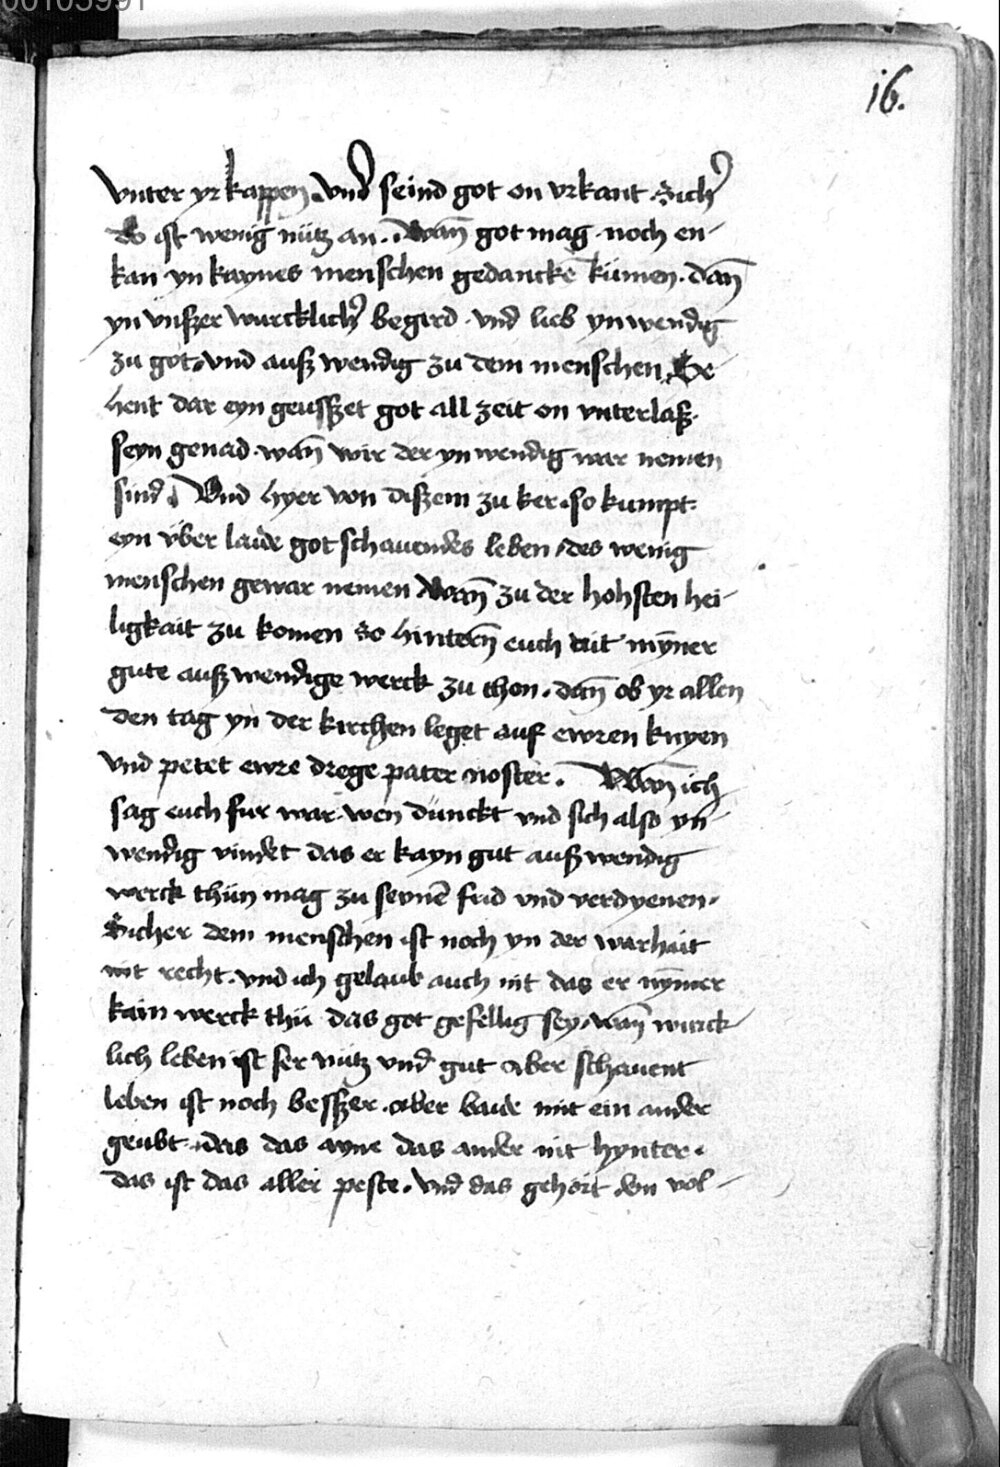 00103991
16.
vnter yr kappen. vnd seind got on vrkant. Sich͛
do ist wenig nütz an. wan̄ got mag noch en-
kan yn kaynes menschen gedanckē kümen. dan̄
yn vnßer wurcklich͛ begird. vnd lieb ynwendig
zu got. vnd außwendig zu dem menschen Se-
hent dar eyn geusßet got all zeit on vnterlaß.
seyn genad. wan̄ wir der ynwendig war nemen
sind. Vnd hyer von dißem zu ker. so kumpt
eyn über laide got schauendes leben. des wenig
menschen gewar nemen Wan̄ zu der hohsten hei-
ligkait zu komen so hintern̄ euch nit myner
gute außwendige werck zu thon. dan̄ ob yr allen
den tag yn der kirchen leget auf ewren knyen
vnd petet ewre drege pater noster. Wan̄ ich
sag euch fur war. wen dünckt vnd sich also yn-
wendig vindet das er kayn gut außwendig
werck thün mag zu seynē frid vnd verdyenen.
Sicher dem menschen ist noch yn der warhait
nit recht. vnd ich gelaub auch nit das er nȳmer
kain werck thü das got gefellig sey. wan̄ wurck-
lich leben ist ser nütz vnd gut aber schauent
leben ist noch besßer. aber baide mit ein ander
geübt. das das ayne das ander nit hynter.
das ist das aller peste. vnd das gehört den vol-